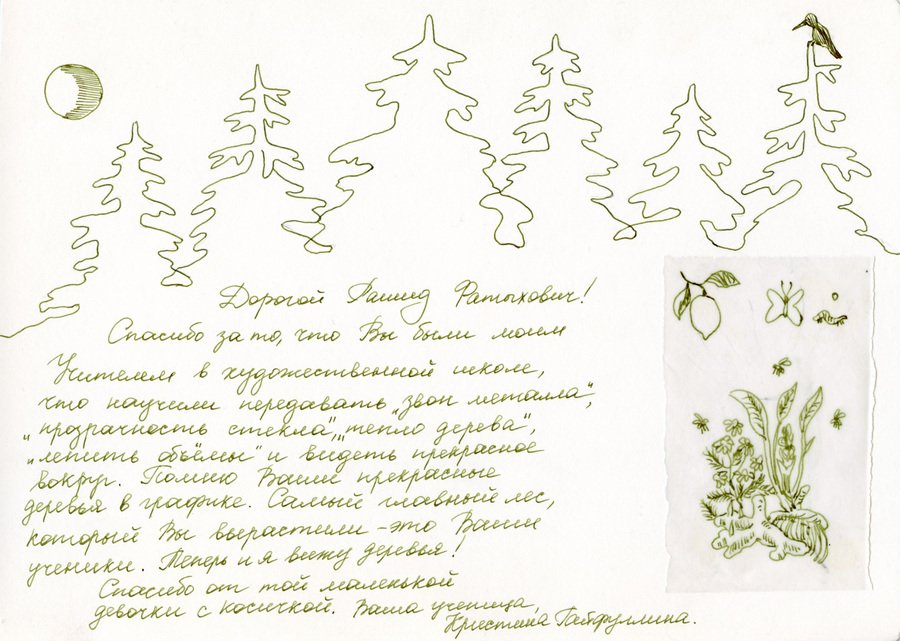 Дорогой Рашид Фатыхович!
Спасибо за то, что Вы были моим
Учителем в художественной школе,
что научили передавать „звон металла“,
„прозрачность стекла“, „тепло дерева“,
„лепить объёмы“ и видеть прекрасное
вокруг. Помню Ваши прекрасные
деревья в графике. Самый главный лес,
который Вы вырастили – это Ваши
ученики. Теперь и я вижу деревья!
Спасибо от той маленькой
девочки с косичкой. Ваша ученица,
Кристина Гайфуллина.